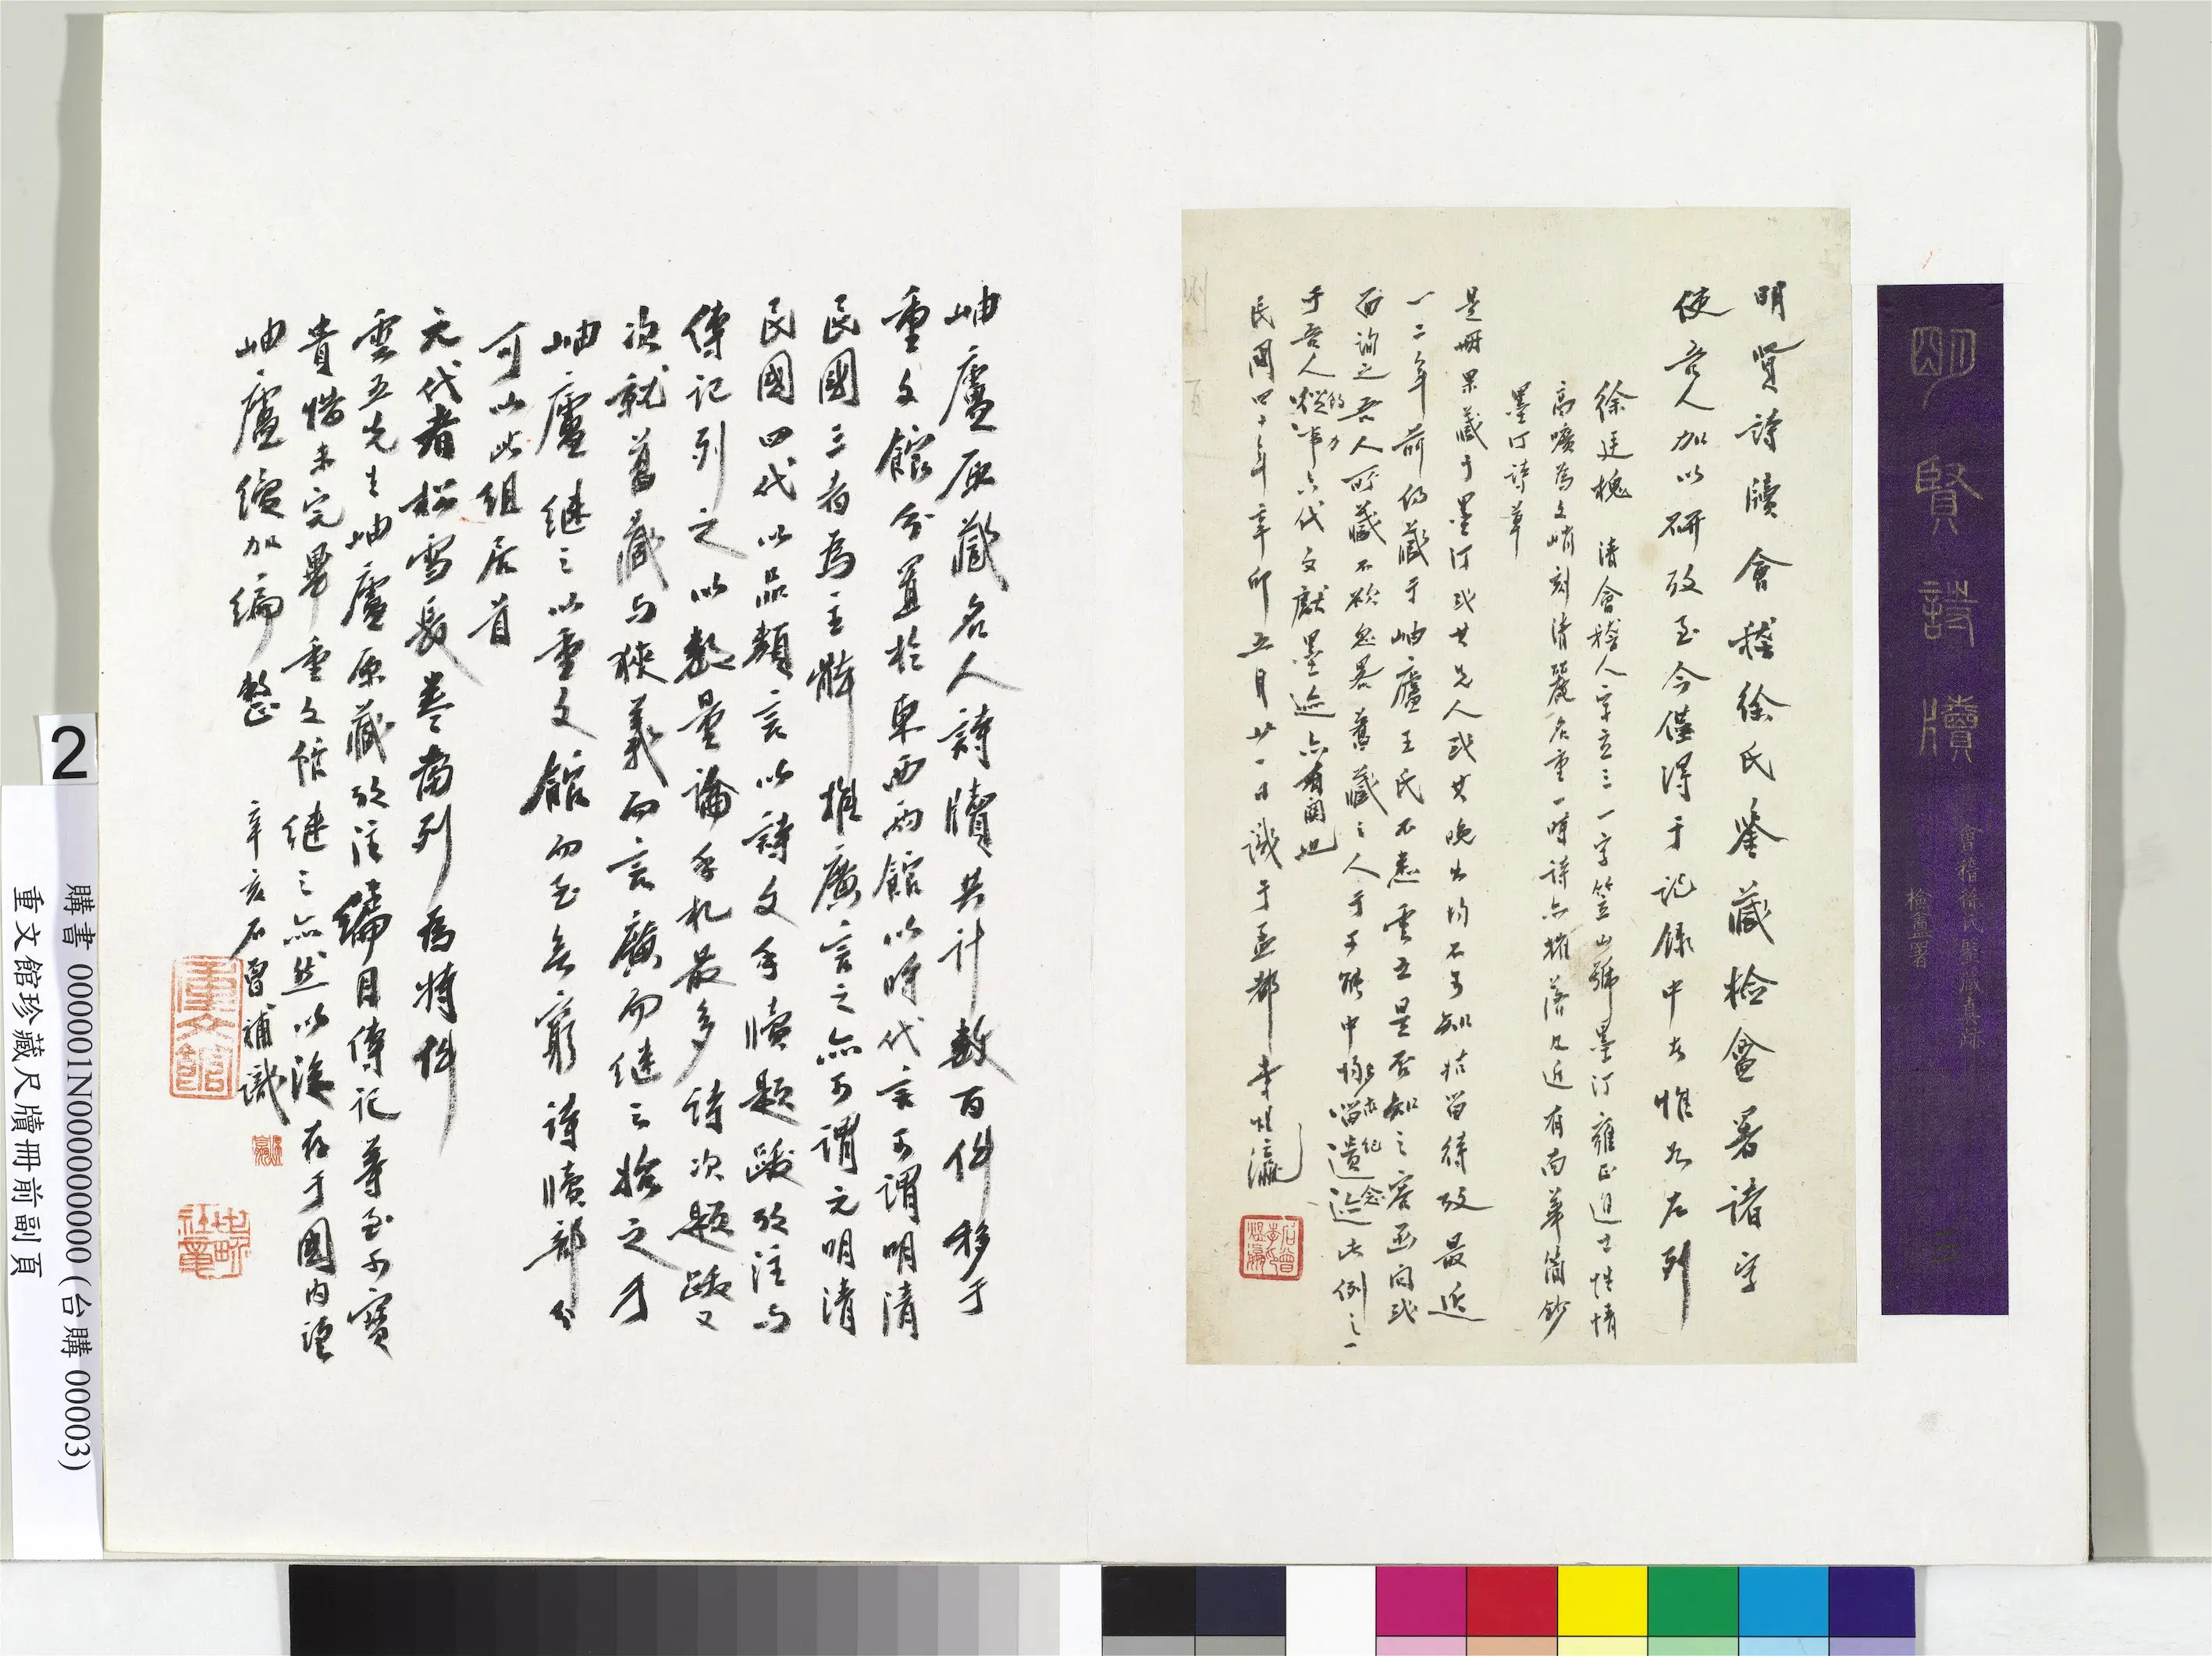 明賢詩牘
會稽徐氏鑒藏真跡
檢盦署
明賢詩牘會稽徐氏鑒藏檢盦署諸字
使吾人加以研攷至今僅得于記錄中者惟為左列
徐廷槐 清會稽人字立三一字笠山號墨汀雍正進士性情
高曠為文峭刻清麗名重一時詩亦擺落凡近有南華簡鈔
墨汀詩草
是冊果藏于墨汀或其先人或其晚出均不可知姑留待攷最近
一二年前仍藏于岫廬王氏不悉雲五是否知之容函問或
面詢之吾人所藏不欲忽畧舊藏之人于可能中恆留遺迹此例之一
亦紀念
于吾人從事六代文獻墨迹亦有關也
的
民國四十年辛卯五月廿一日識于孟都 李煜瀛
岫廬原藏名人詩牘共計數百件移于
重文館分置於東西兩館以時代言可謂明清
民國三者為主體推廣言之亦可謂元明清
民國四代以品類言以詩文手牘題跋攷注與
傳記列之以數量論手札最多詩次題跋又
次就舊藏與狹義而言廣而繼之捨之于
岫廬繼之以重文館而至無窮詩牘部分
可以此組居首
元代者松雪長卷當列為特件
雲五先生岫廬原藏攷注編目傳記等至可寶
貴惜未完畢重文館繼之亦然以後存于國內諸
岫廬續加編整
辛亥石曾補識
重文館
2
購書 0000001N000000000 (台購 000003)
重文館珍藏尺牘冊前副頁